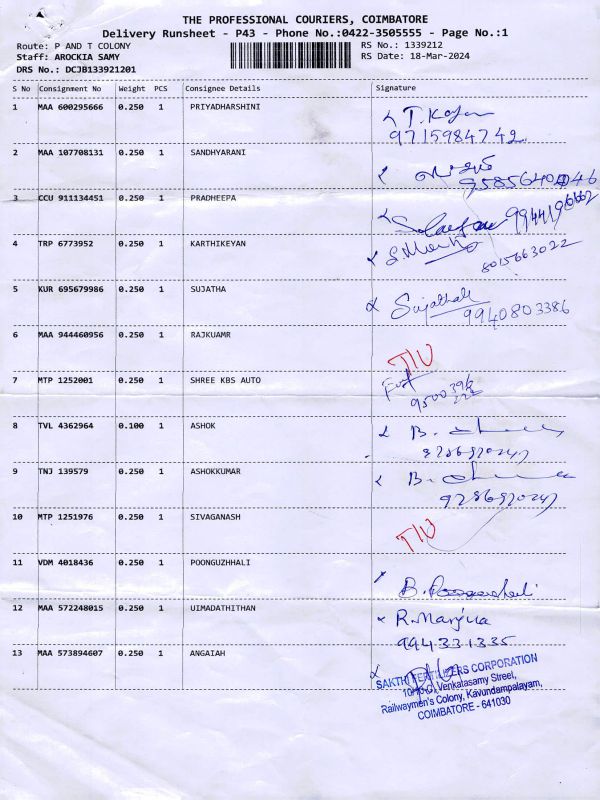 THE PROFESSIONAL COURIERS, COIMBATORE
Delivery Runsheet - P43 - Phone No.:0422-3505555 - Page No.:1
Route: P AND T COLONY RS No.: 1339212
Staff: AROCKIA SAMY RS Date: 18-Mar-2024
DRS No.: DCJB133921201
S No Consignment No Weight PCS Consignee Details Signature
1 MAA 600295666 0.250 1 PRIYADHARSHINI
9715984742
2 MAA 107708131 0.250 1 SANDHYARANI
3 CCU 911134451 0.250 1 PRADHEEPA
4 TRP 6773952 0.250 1 KARTHIKEYAN
8015663022
5 KUR 695679986 0.250 1 SUJATHA
9940803386
6 MAA 944460956 0.250 1 RAJKUAMR
7 MTP 1252001 0.250 1 SHREE KBS AUTO
8 TVL 4362964 0.100 1 ASHOK
B.
9 TNJ 139579 0.250 1 ASHOKKUMAR
B.
10 MTP 1251976 0.250 1 SIVAGANASH
11 VDM 4018436 0.250 1 POONGUZHHALI
12 MAA 572248015 0.250 1 UIMADATHITHAN
13 MAA 573894607 0.250 1 ANGAIAH
SAKTHI FERTILIZERS CORPORATION
Venkatasamy Street,
Railwaymen's Colony, Kavundampalayam,
COIMBATORE - 641030